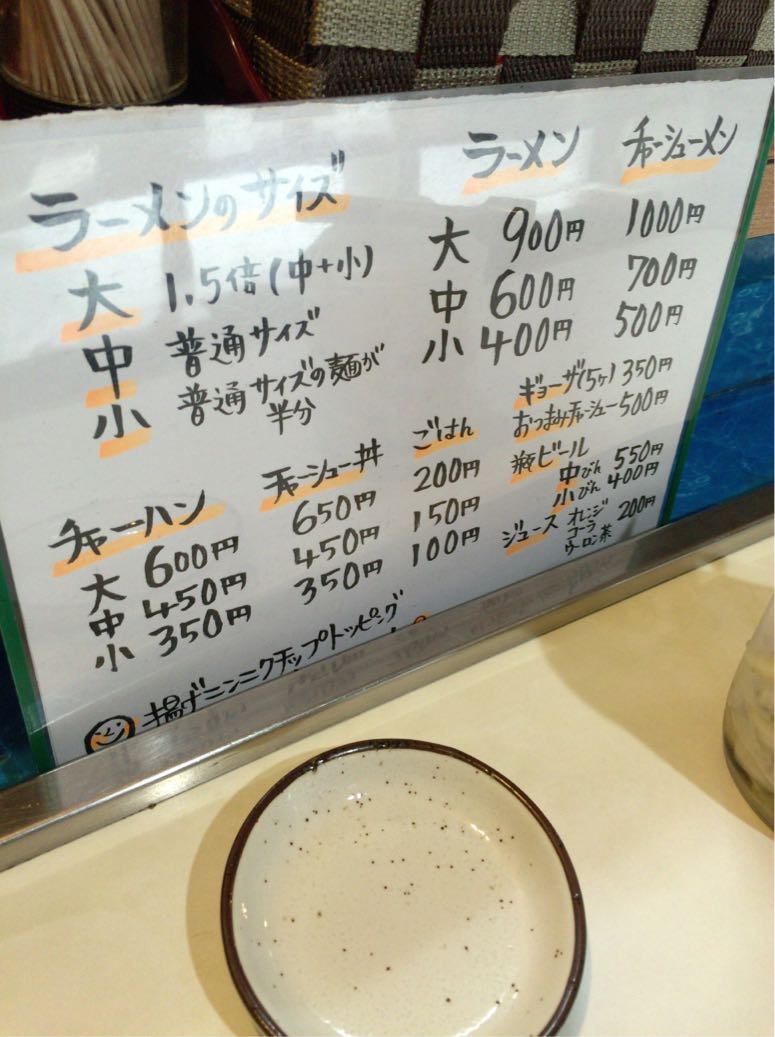 ラーメンのサイズ
大 1.5倍(中+小)
中 普通サイズ
小 普通サイズの麺が
半分
ラーメン チャーシューメン
大 900円 1000円
中 600円 700円
小 400円 500円
ギョーザ(5ヶ) 350円
おつまみチャーシュー 500円
瓶ビール
中びん 550円
小びん 400円
ジュース オレンジ
コーラ 200円
ウーロン茶
チャーハン チャーシュー丼 ごはん
大 600円 650円 200円
中 450円 450円 150円
小 350円 350円 100円
揚げニンニクチップトッピング